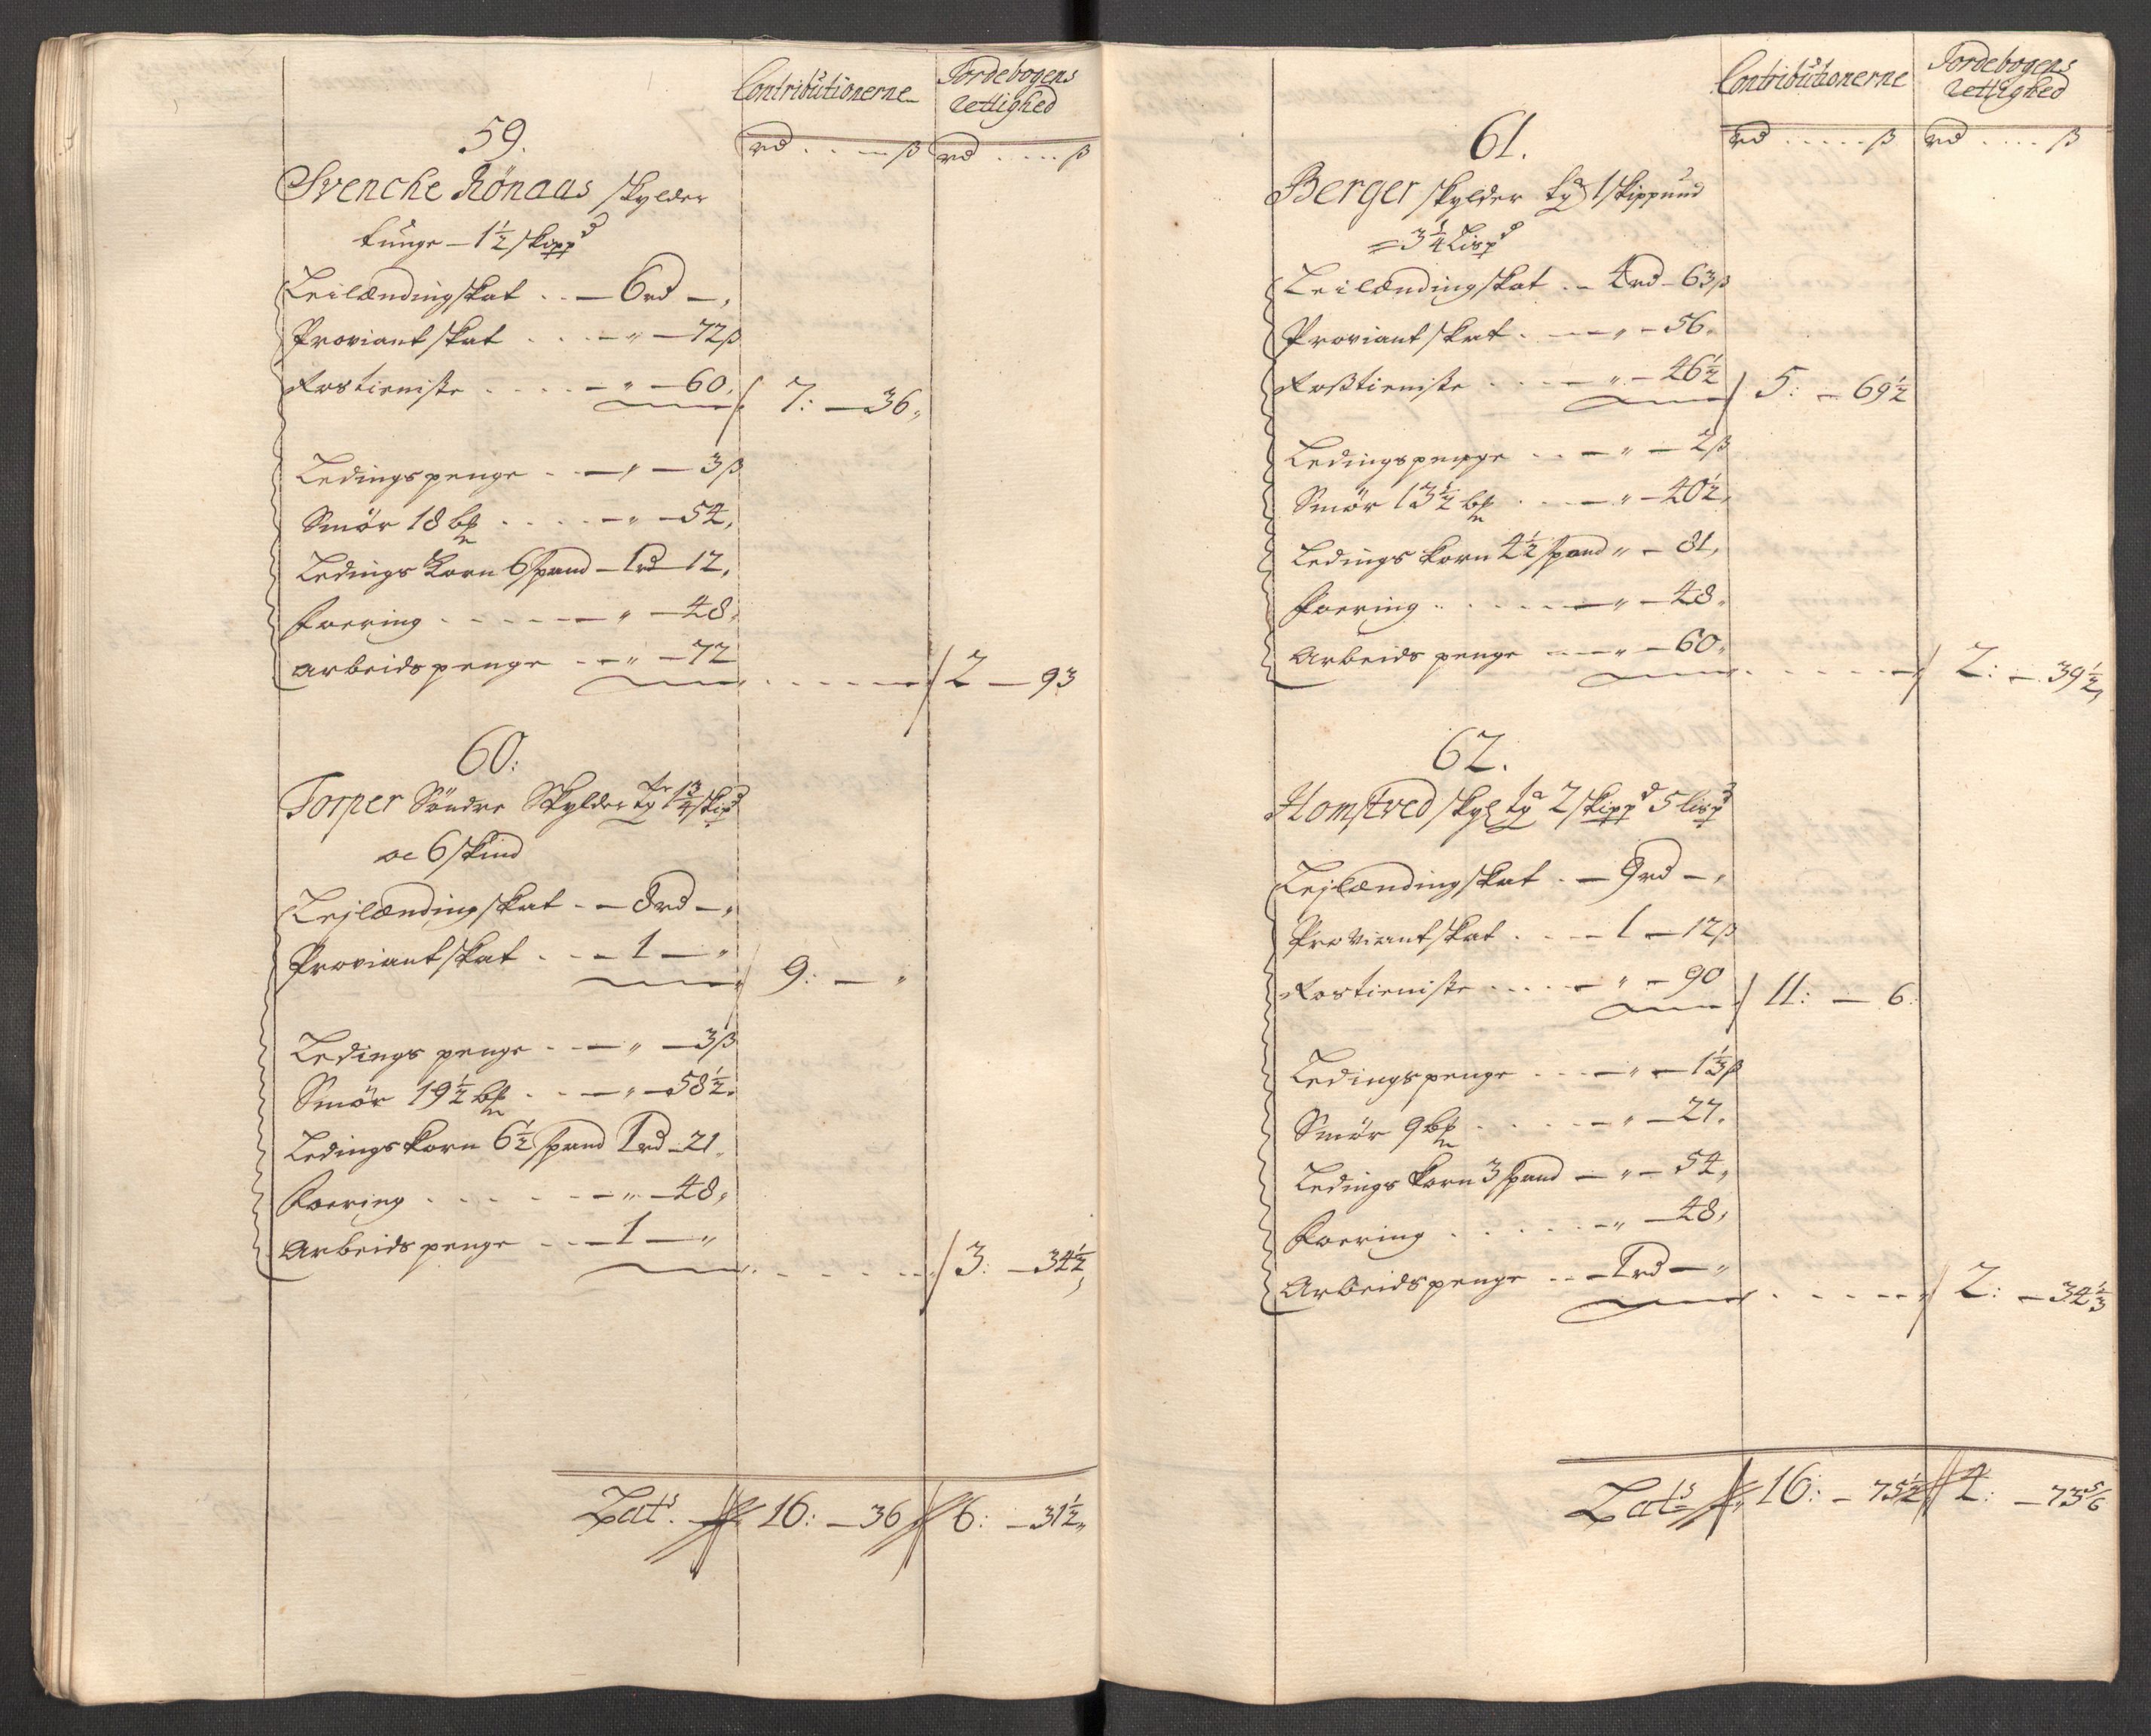 Contributionerne Jordebogens
Rettighed
rd ß rd ß
59.
Svenche Rönaas skylder
tunge - 1½ skippd
Leilændingskat - 6 rd - „
Proviantskat - „ - 72 ß
Rostieniste - „ - 60 „ 7: - 36 „
Ledingspenge - „ - 3 ß
Smör 18 bpd - „ - 54 „
Ledings Korn 6 spand - 1 rd - 12 „
Foering - „ - 48 „
Arbeidspenge - „ - 72 2 - 93
60:
Torper Söndre Skylder tge 1¾ skipd
oc 6 skind
Lejlændingskat - 8 rd - „
Proviantskat - 1 - „ 9: - „
Ledings penge - „ - 3 ß
Smör 19½ bpd - „ - 58½ „
Ledingskorn 6½ spand 1 rd - 21 „
Foering - „ - 48 „
Arbeidspenge - 1 - „ 3: - 34½ „
Lats. 16: - 36 6: - 31½ „
Contributionerne Jordebogens
Rettighed
rd ß rd ß
61.
Berger skylder tg 1 skippund
= 3¼ Lispd
Leilændingskat - 4 rd - 63 ß
Proviantskat - „ - 56 „
Roßtieniste - „ - 46½ 5: - 69½
Ledingspenge - „ - 2 ß
Smör 13½ bpd - „ - 40½ „
Ledings korn 4½ spand „ - 81 „
Foering - „ - 48 „
Arbeids penge - „ - 60 „ 2: - 39½ „
62.
Homstved skyl tga 2 skippd 5 lispd
Lejlændingskat - 9 rd - „
Proviantskat - 1 - 12 ß
Rostieniste - „ - 90 11: - 6:
Ledingspenge - „ - 1⅓ ß
Smör 9 bpd - „ - 27 „
Ledings korn 3 spand - „ - 54 „
Foering - „ - 48 „
Arbeidspenge - 1 rd - „ 2: - 34⅓
Lats 16: - 75½ 4: - 73⅚